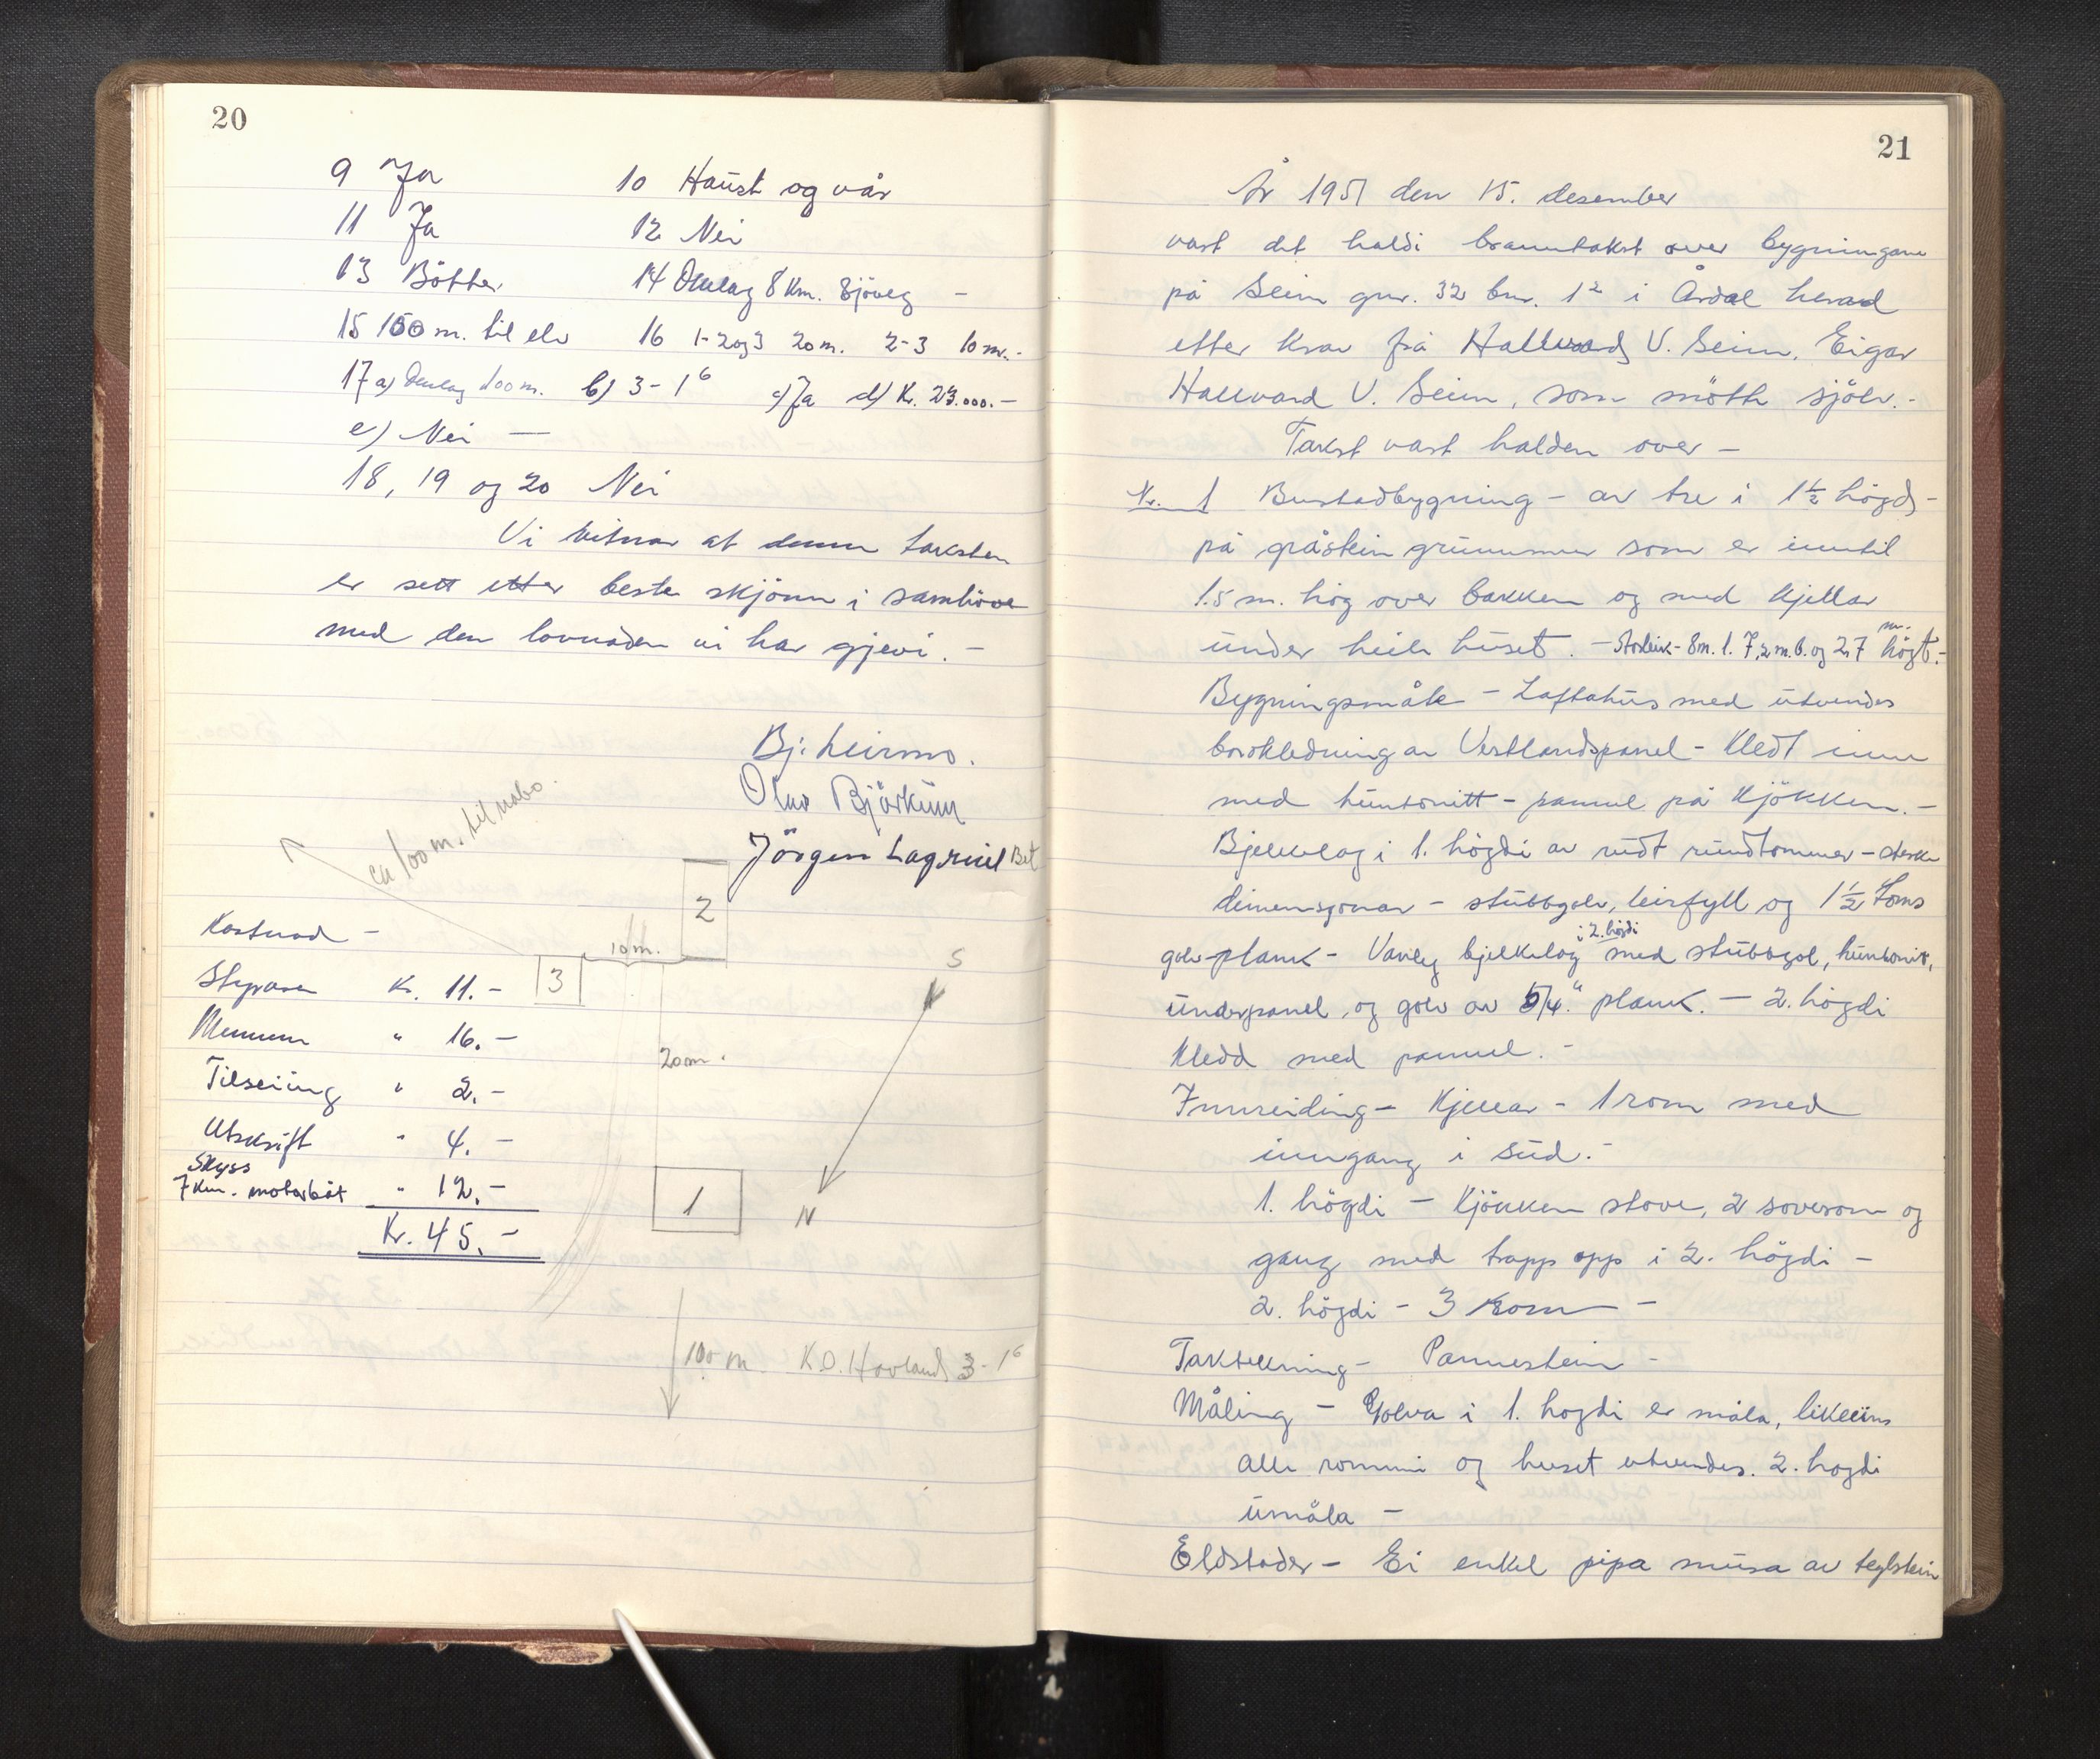 20
9 Ja 10 Haust og vår
11 Ja 12 Nei
13 Bötter. 14 Omlag 8 km. sjöveg -
15 150 m. til elv 16 1-2 og 3 20 m. 2-3 10 m.-
17 a) Omlag 100 m. b) 3-1⁶ c) Ja d) Kr. 23.000.-
e) Nei -
18, 19 og 20 Nei
Vi vitnar at denne taksten
er sett etter beste skjönn i samhöve
med den lovnaden vi har gjevi. -
Bj. Leirmo.
Olav Björkum
Jörgen Lægreid
ca 100 m. til nabo.
2
Kostnad -
10 m.
3
S
Kr. 11.-
" 16.-
20 m.
Tilseiing " 2.-
Utskrift " 4.-
Skyss
7 km. motorbåt " 12.-
1
N
Kr. 45.-
100 m. K.O. Hovland 3-1⁶
21
År 1951 den 15. desember
vart det haldi branntakst over bygningane
på Seim gnr. 32 bnr. 1² i Årdal herad
etter krav frå Hallvard V. Seim. Eigar
Hallvard V. Seim, som mötte sjölv.-
Takst vart halden over -
Nr. 1 Bustadbygning - av tre i 1½ högd -
på gråstein grunnmur som er inntil
1.5 m. hög over bakken og med kjellar
under heile huset. - Storleik - 8 m. l. 7,2 m. b. og 2,7 m. högt.-
Bygningsmåte - Laftahus med utvendes
bordkledning av Vestlandspanel - kledt inne
med huntonitt - pannel på kjökken. -
Bjelkelag i 1. högdi av rudt rundtömmer - sterke
dimensjonar - stubbgolv, leirfyll og 1½ toms
golvplank - Vanleg bjelkelag i 2. högdi med stubbgol, huntonit,
underpanel, og golv av 5/4" plank. - 2. högdi
kledd med pannel. -
Innreiding - Kjellar - 1 rom med
inngang i süd. -
1. högdi - Kjökken stove, 2 soverom og
gang med trapp opp i 2. högdi -
2. högdi - 3 rom -
Taktekning - Pannestein -
Måling - Golva i 1. hogdi er måla, likeeins
alle rommi og huset utvendes. 2. hogdi
umåla -
Eldstader - Ei enkel pipa mura av teglstein